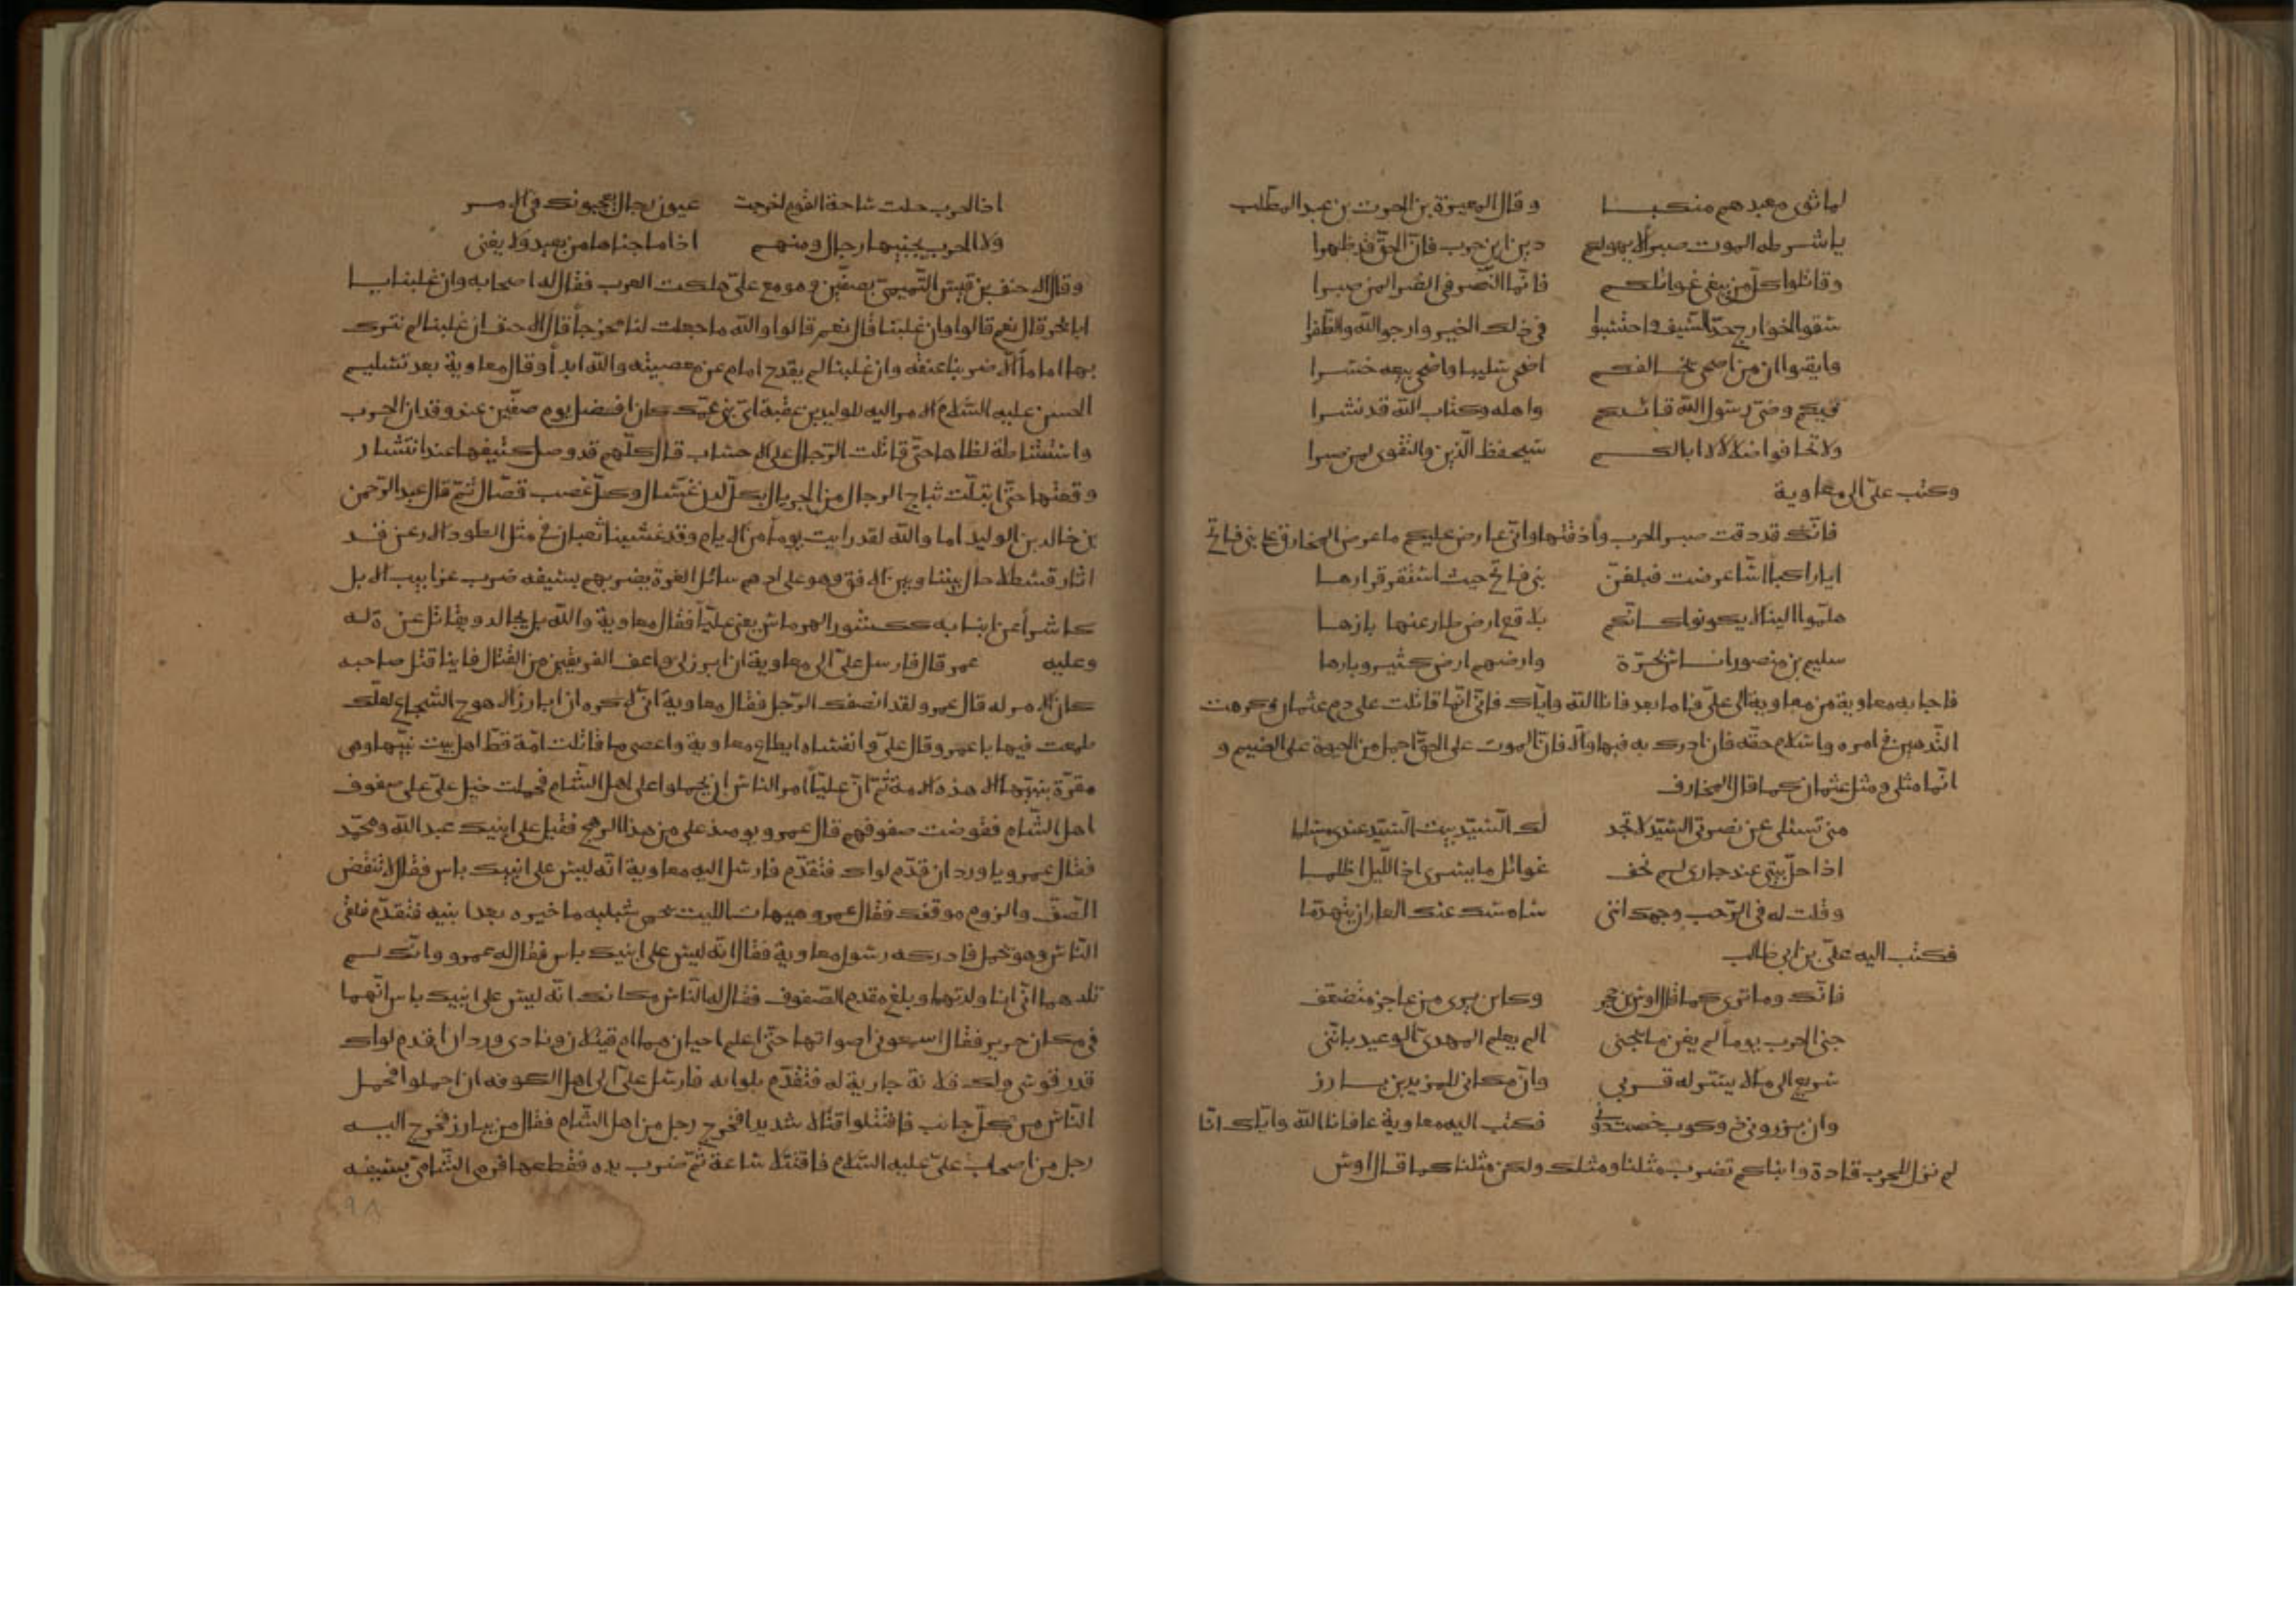 لما ثوى معبدهم منكبا وقال المغيرة بن الحرث بن عبد المطلب
يا شرطه الموت صبرا لا يهولكم دين ابن حرب فان الحق قد ظهرا
وقاتلوا كل من يبغى غوائلكم فانما النصر فى الضرا لمن صبرا
سقوا الخوارج حد السيف واحتسبوا فى ذلك الخير وارجوا الله والظفرا
وايقنوا ان من اضحى يخالفكم اضحى شقيا واضحى بيعه خسرا
فيكم وصى رسول الله قائدكم واهله وكتاب الله قد نشرا
ولا تخافوا ضلالا لا ابا لكم سيحفظ الدين والتقوى لمن صبرا
وكتب على الى معاوية
فانك قد ذقت صبر الحرب واذقتها وانى عارض عليكم ما عرض المخارق على بنى فالج
ايا راكبا اما عرضت فبلغن بنى فالج حيث استقر قرارها
هلموا الينا لا يكونوا كانكم بلاقع ارض طار عنها بارها
سليم بن منصور اناس بحرة وارضهم ارض كثير وبارها
فاجابه معاوية من معاوية الى على اما بعد فانا الله واياك فانى انما قاتلت على دم عثمان وكرهت
التدهين فى امره واسلام حقه فان ادرك به فيها والا فان الموت على الحق اجمل من الحيوة على الضيم و
انما مثلى ومثل عثمان كما قال المخارق
متى تسئلى عن نصرتى السيد لا تجد لك السيد بيت السيد عندى مسلما
اذا حل بيتى عند جارى لم يخف غوائل ما يسرى اذا الليل اظلما
وقلت له فى الرحب وجهك اننى سامسك عنك العار ان يتهدما
فكتب اليه على بن ابى طالب
فانك وما ترى كما قال اوس بن حجر وكاين يرى من عاجز متضعف
جنى الحرب يوما لم يغن ما يجنى الم يعلم المهدى الوعيد باننى
سريع الى ما لا يسر له قربى وان مكانى للمريدين بارز
وان برزونى ذو كوب فكتب اليه معاوية عافانا الله واياك انا
لم نزل للحرب قادة وابناكم تضرب مثلنا ومثلك ولكن مثلنا كما قال اوس
اذا الحرب حلت ساحة القوم اخرجت عيون رجال يعجبونك فى الامر
ولا الحرب يجنيها رجال ومنهم اذا ما جناها من بعيد ولا يغنى
وقال الاحنف بن قيس التميمى بصفين وهو مع على هلكت العرب فقال له اصحابه وان غلبنا يا
ابا بحر قال نعم قالوا وان غلبنا قال نعم قالوا والله ما جعلت لنا مخرجا قال الاحنف ان غلبنا لم نترك
بها اماما الا ضربنا عنقه وان غلبنا لم يقدح امام عن معصيته والله ابدا وقال معاوية بعد تسليم
الحسن عليه السلام الامر اليه للوليد بن عقبة اى بنى عمك كان افضل يوم صفين عند وقدان الحرب
واستشاطة لظاها حتى قاتلت الرجال على الاحساب قال كلهم قد وصل كنيفها عند انتشار
وقعتها حتى ابتلت ثباج الرجال من الجريال بكل لدن عسال وكل عضب قصال ثم قال عبد الرحمن
بن خالد بن الوليد اما والله لقد رايت يوما من الايام وقد غشينا ثعبان فى مثل الطود الارعن قد
اثار قسطلا حال بيننا وبين الافق وهو على ادهم سائل الغرة يضربهم بسيفه ضرب غرايب الابل
كاشرا عن انيابه ككشور الهرماس يعنى عليا فقال معاوية والله بل يجالد ويقاتل عن ترة له
وعليه عمر قال فارسل على الى معاوية ان ابرز لى واعف الفريقين من القتال فاينا قتل صاحبه
كان الامر له قال عمرو لقد انصفك الرجل فقال معاوية انى لاكره ان ابارز الاهوج الشجاع لعلك
طمعت فيها يا عمرو وقال على وانفساه ايطاع معاوية واعصى ما قاتلت امة قط اهل بيت نبيها وهى
مقرة بنبيها الا هذه الامة ثم ان عليا امر الناس ان يحملوا على اهل الشام فحملت خيل على على صفوف
اهل الشام فقوضت صفوفهم قال عمرو يومئذ على من هذا الرهج فقيل على ابنيك عبد الله ومحمد
فقال عمرو يا وردان قدم لواك فتقدم فارسل اليه معاوية انه ليس على ابنيك باس فقال لا تنقض
الصف والزم موقفك فقال عمرو هيهات الليث يحمى شبليه ما خيره بعد ابنيه فتقدم فلقى
الناس وهو يحمل فادركه رسول معاوية فقال انه ليس على ابنيك باس فقال له عمرو وانك لم
تلدهما انى انا ولدتهما وبلغ مقدم الصفوف فقال له الناس مكانك انه ليس على ابنيك باس انهما
فى مكان حريز فقال اسمعونى اصواتهما حتى اعلم احيان هما ام قتيلان ونادى وردان اقدم لواك
قدر قوسى ولك فلانة جارية له فتقدم بلوايه فارسل على الى اهل الكوفه ان احملوا فحمل
الناس من كل جانب فاقتتلوا قتالا شديدا فخرج رجل من اهل الشام فقال من يبارز فخرج اليه
رجل من اصحاب على عليه السلام فاقتتلا ساعة ثم ضرب يده فقطعها فرمى الشامى بسيفه
٩٨